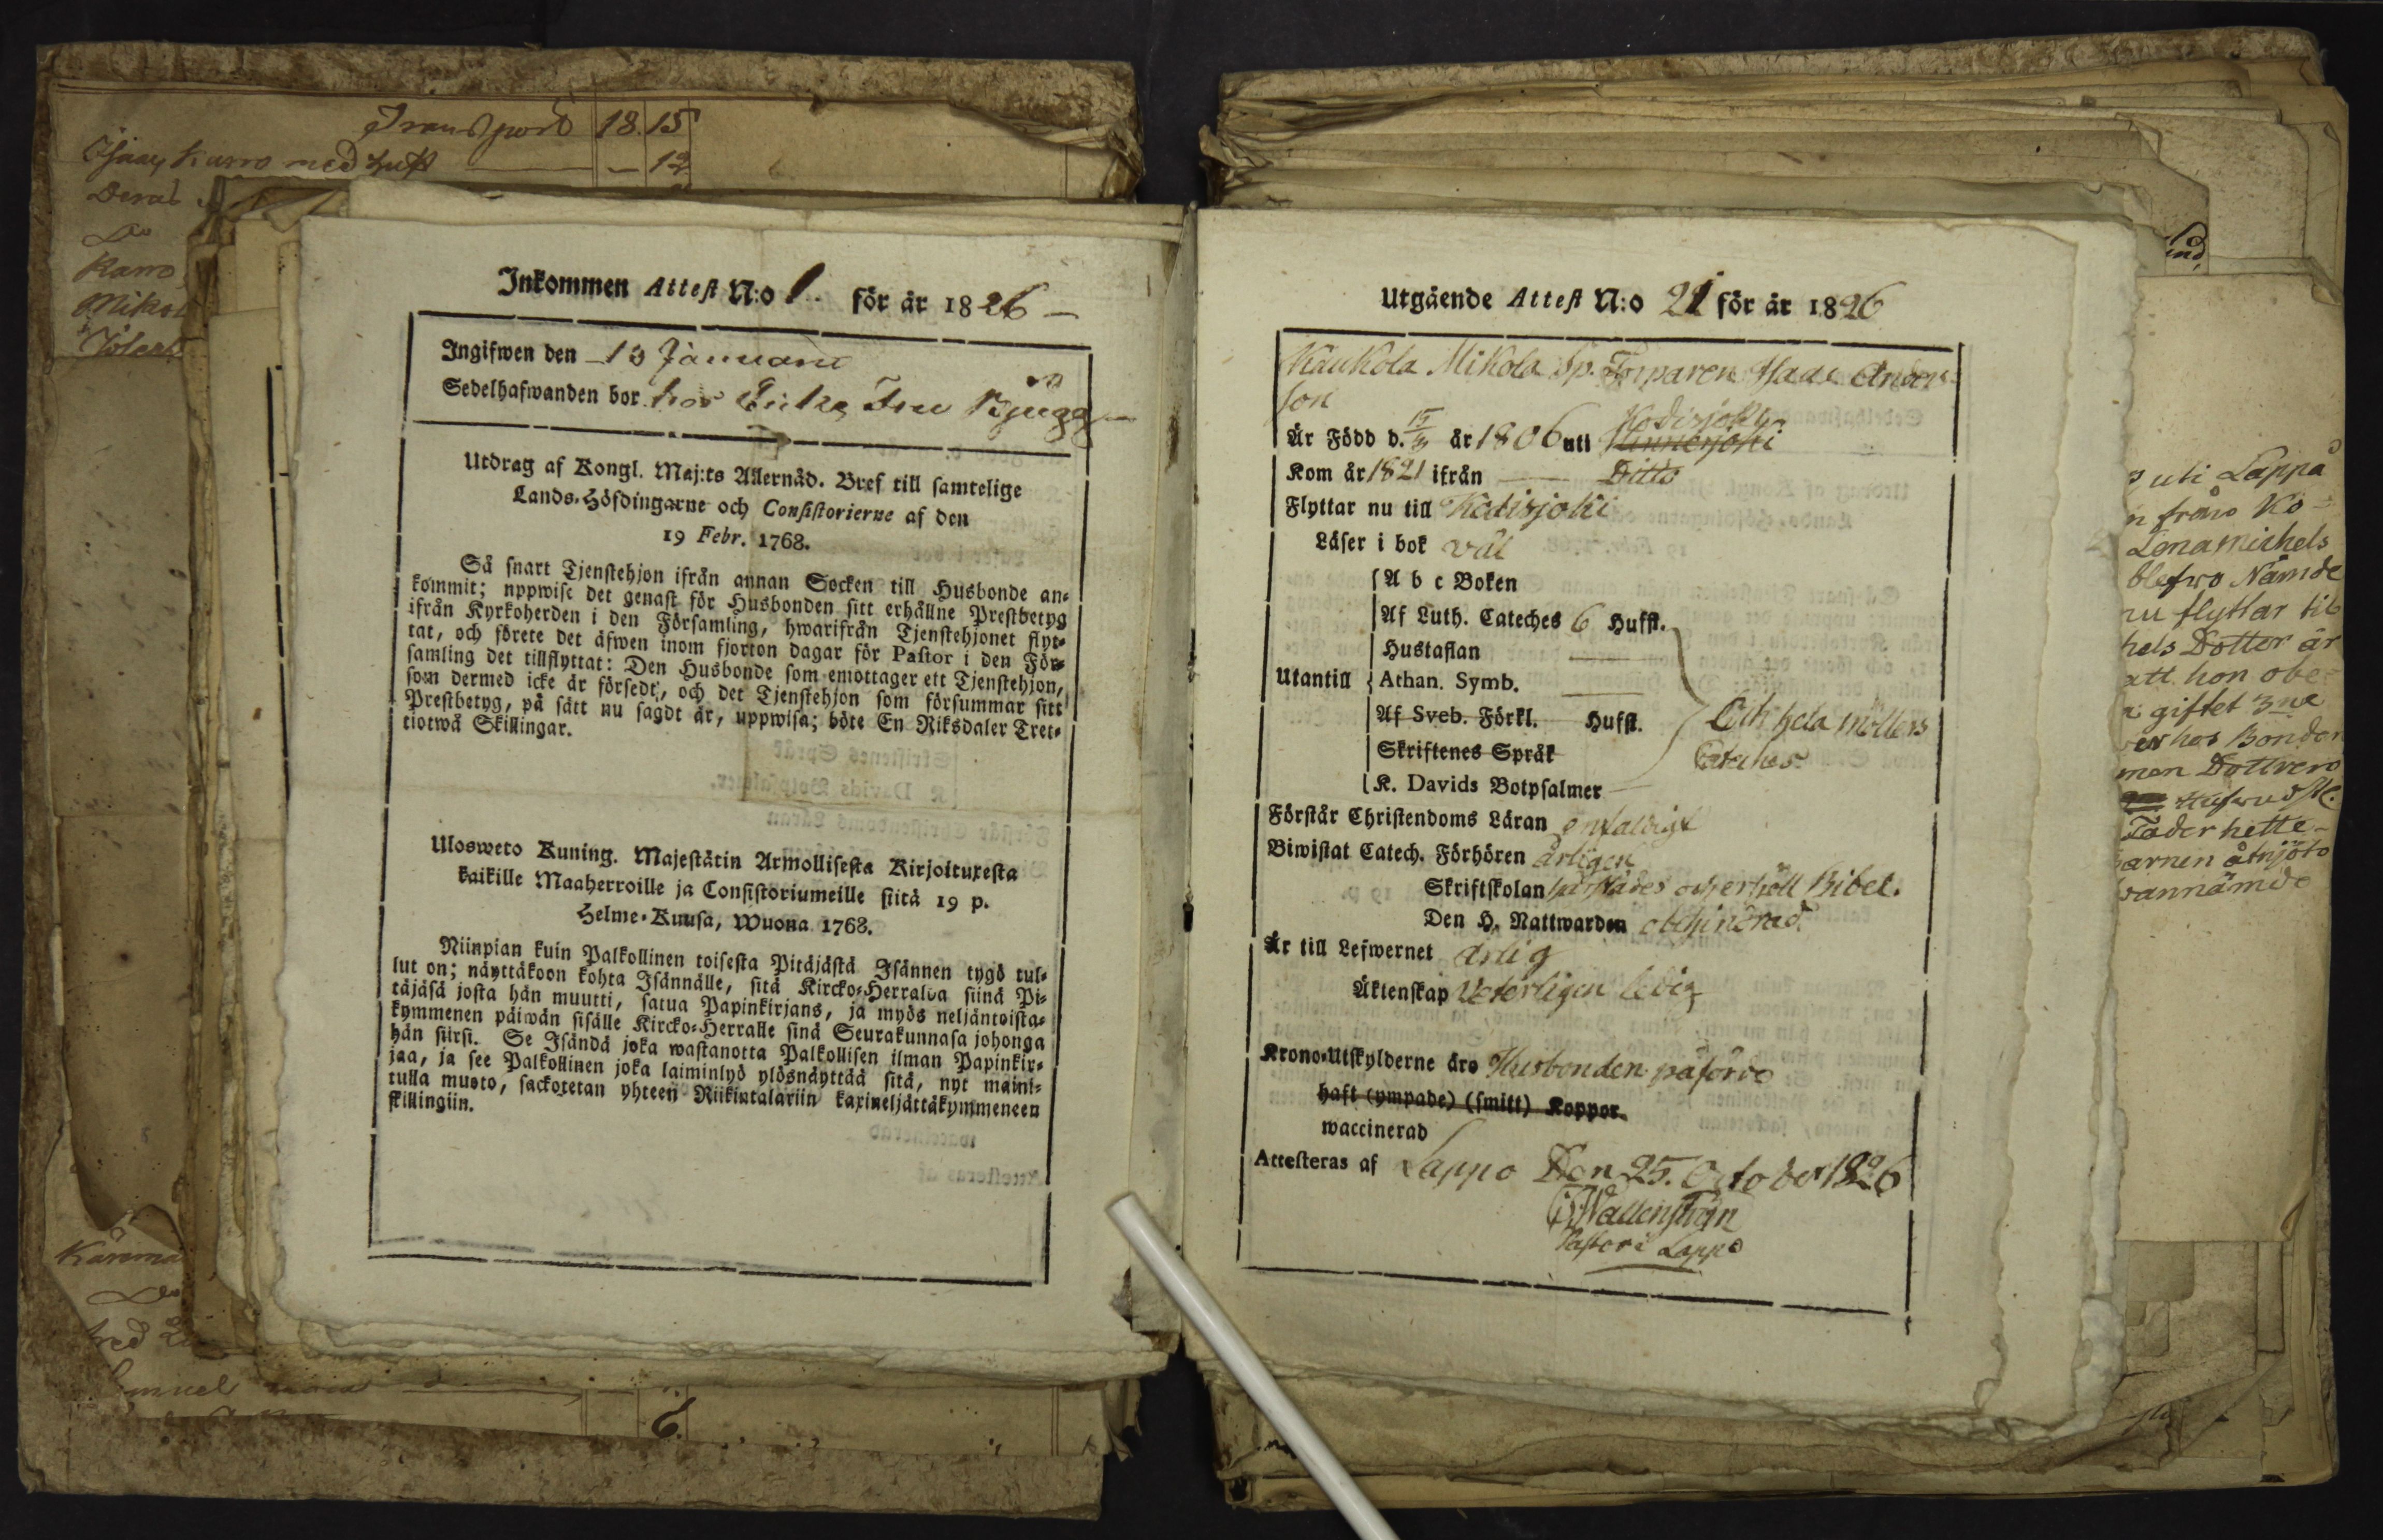 Transport 18. 15
med hust — 12
Karro
Inkommen Attest N:o 1. för år 1826 —
Ingifwen den 13 Januarii
Sedelhafwanden bor hos Enke Fru
Utdrag af Kongl. Maj:ts Allernåd. Bref till samtelige
Lands-Höfdingarne och Consistorierne af den
19 Febr. 1768.
Så snart Tjenstehjon ifrån annan Socken till Husbonde an-
kommit; uppwise det genast för Husbonden sitt erhållne Prestbetyg
ifrån Kyrkoherden i den Församling, hwarifrån Tjenstehjonet flyt-
tat, och förete det äfwen inom fjorton dagar för Pastor i den För-
samling det tillflyttat: Den Husbonde som emottager ett Tjenstehjon,
som dermed icke är försedt, och det Tjenstehjon som försummar sitt
Prestbetyg, på sätt nu sagdt är, uppwisa; böte En Riksdaler Tret-
tiotwå Skillingar.
Ulosweto Kuning. Majestätin Armollisesta Kirjoituxesta
kaikille Maaherroille ja Consistoriumeille siitä 19 p.
Helme-Kuusa, Wuona 1768.
Niinpian kuin Palkollinen toisesta Pitäjästä Isännen tygö tul-
lut on; näyttäkoon kohta Isännälle, sitä Kircko-Herralda siinä Pi-
täjäsä josta hän muutti, saatua Papinkirjans, ja myös neljäntoista-
kymmenen päiwän sisälle Kircko-Herralle sinä Seurakunnasa johonga
hän siirsi. Se Isändä joka wastanotta Palkollisen ilman Papinkir-
jaa, ja see Palkollinen joka laiminlyö ylösnäyttää sitä, nyt maini-
tulla muoto, sackotetan yhteen Riikintalariin kaxineljättäkymmeneen
skillingiin.
6.
Utgående Attest N:o 21 för år 1826
Kaukola Mikola Sp. Torparen Isaac Anders-
son
Kodisjoky
Är Född d. 15/4 år 1806 uti Kinnerjoki
Kom år 1821 ifrån — Ditto
Flyttar nu till Kodisjoki
Läser i bok väl
A b c Boken
Af Luth. Cateches 6 Hufst.
Hustaflan
Utantill Athan. Symb.
Af Sveb. Förkl. Hufst. Och hela möllers
Skriftenes Språk Cateches
K. Davids Botpsalmer
Förstår Christendoms Läran enfaldigt
Biwistat Catech. Förhören årligen
Skriftskolan härstädes och erhöll Bibel.
Den H. Nattwarden obehindrad.
Är till Lefwernet ärlig
Äktenskap Veterligen ledig
Krono-Utskylderne äro Husbonden påförde
haft (ympade) (smitt) Koppor
waccinerad
Attesteras af Lappo Den 25. October 1826
Wallenström
Pastor i Lappo
uti Lappå
n från Ko-
Lena michels
blefwo Nämde
nu flyttar til
hels Dotter är
att hon obe-
giftet 3ne
hos Bonden
Fader hette
arnen åtnjöto